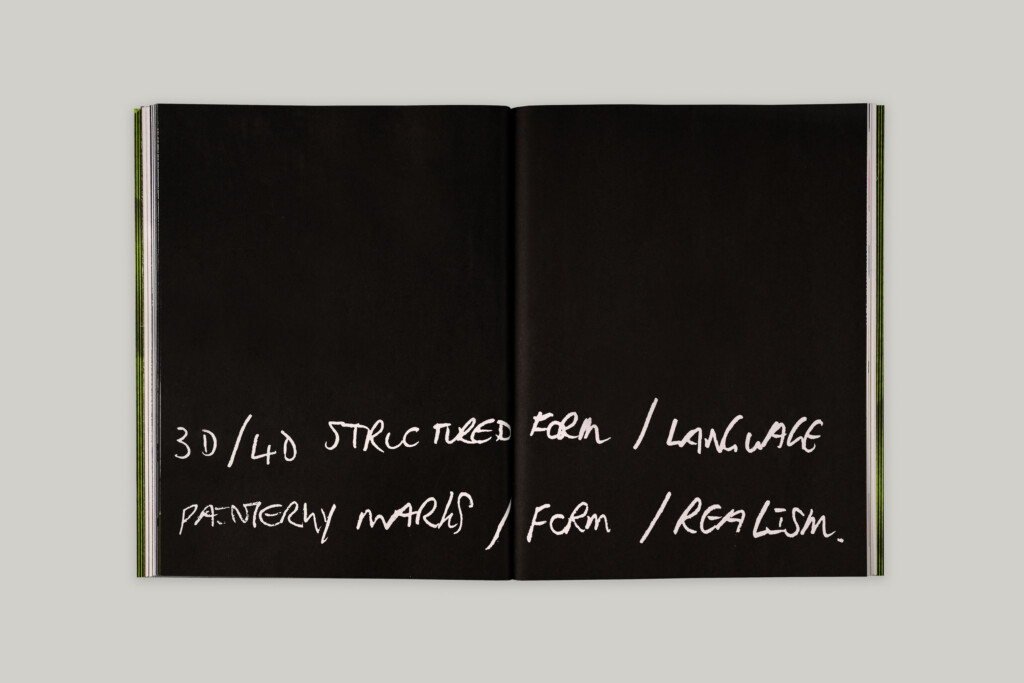 3D/4D STRUCTURED FORM / LANGUAGE
PAINTERLY MARKS / FORM / REALISM.